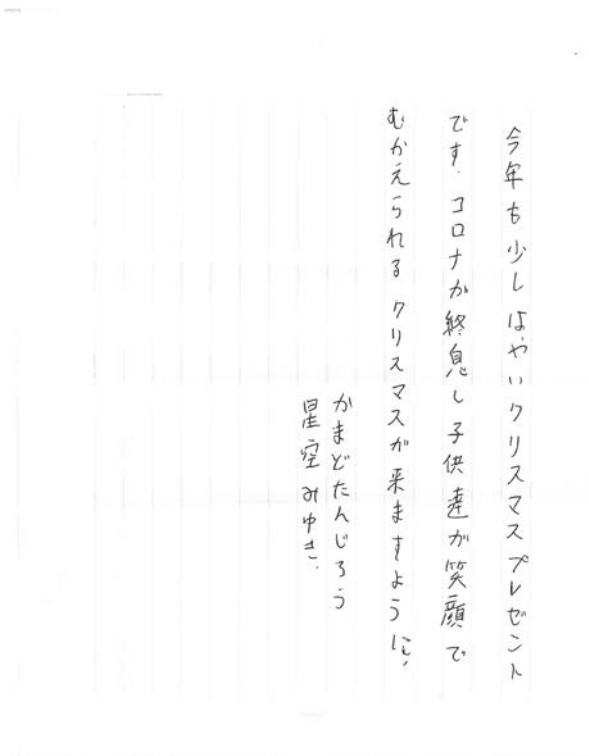 今年も少しはやいクリスマスプレゼント
です．コロナが終息し子供達が笑顔で
むかえられるクリスマスが来ますように，
かまどたんじろう
星空みゆき．